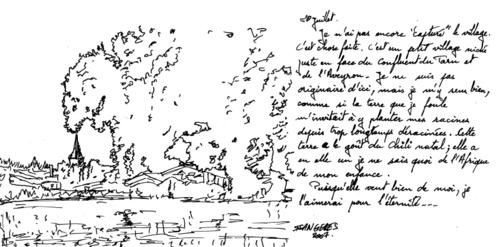 20 juillet.
Je n'ai pas encore "capturé" le village.
C'est chose faite. C'est un petit village niché
juste en face du Confluent du Tarn et
de l'Aveyron. Je ne suis pas
originaire d'ici, mais je m'y sens bien,
comme si la terre que je foule
m'invitait à y planter mes racines
depuis trop longtemps déracinées. Cette
terre a le goût du Chili natal; elle a
en elle un je ne sais quoi de l'Afrique
de mon enfance.
Puisqu'elle veut bien de moi, je
l'aimerai pour l'éternité...
2007